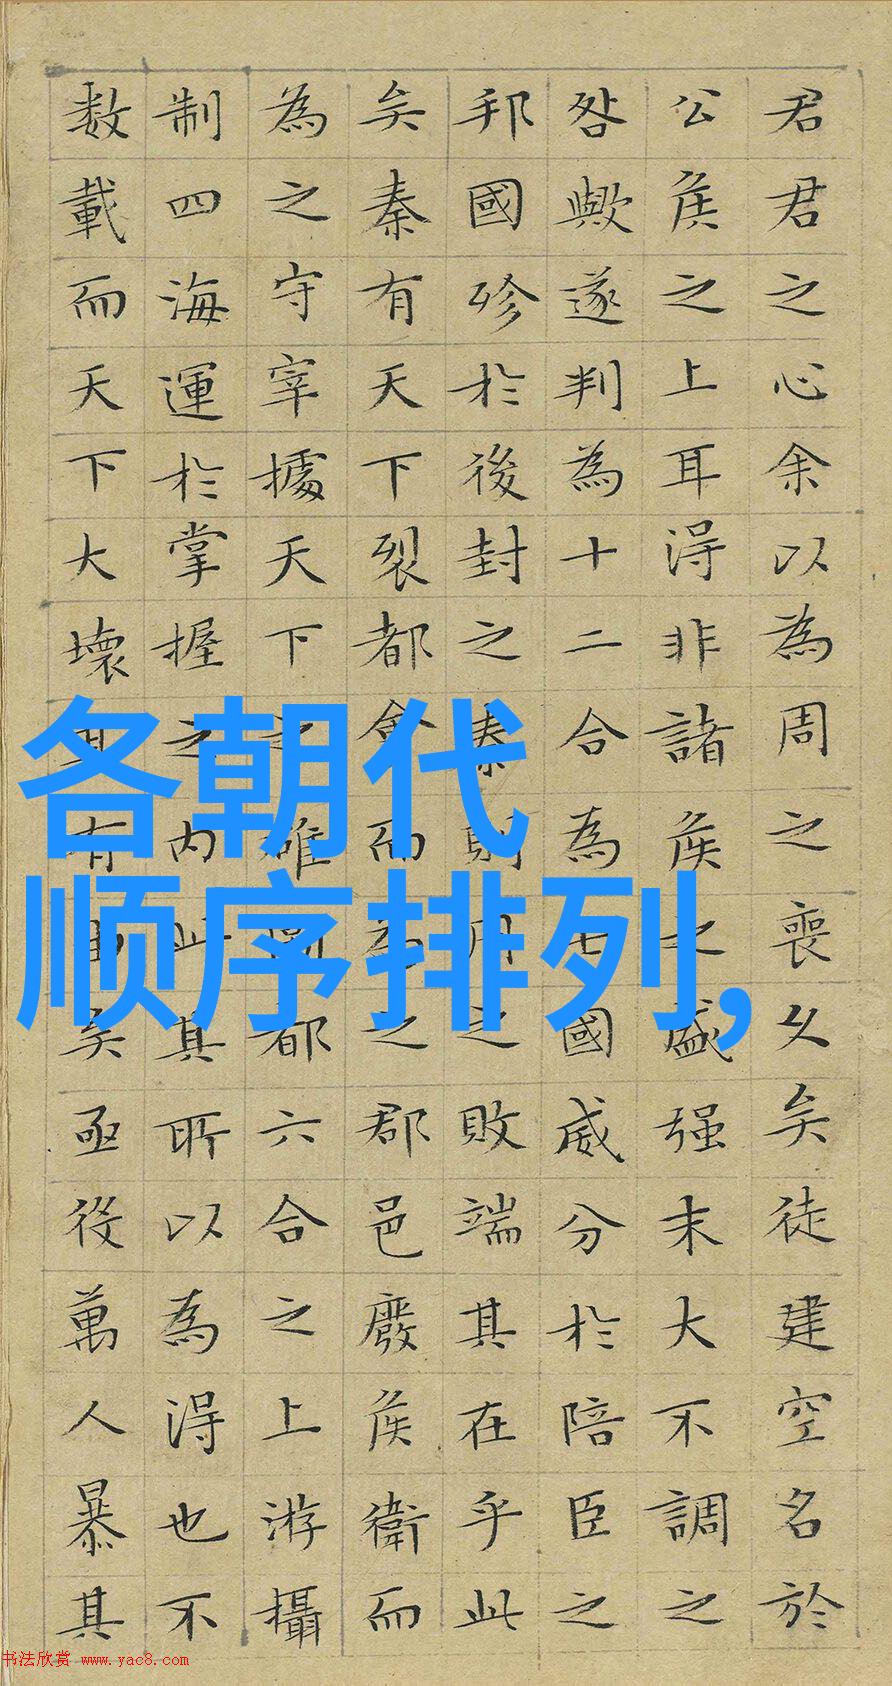 君君之心余以為周之喪久矣徒建空名於
公侯之上耳得非諸侯之盛强末大不調之
咎歟遂判為十二合為七國威分於陪臣之
邦國殄於後封之秦則周之敗端其在乎此
矣秦有天下裂都會而為之郡邑廢侯衛而
為之守宰據天下之雄圖都六合之上游攝
制四海運於掌握之內此其所以為得也不
数載而天下大壞其有由矣亟役萬人暴其
各朝代
顺序排列,
书法欣赏 www.yac8.com